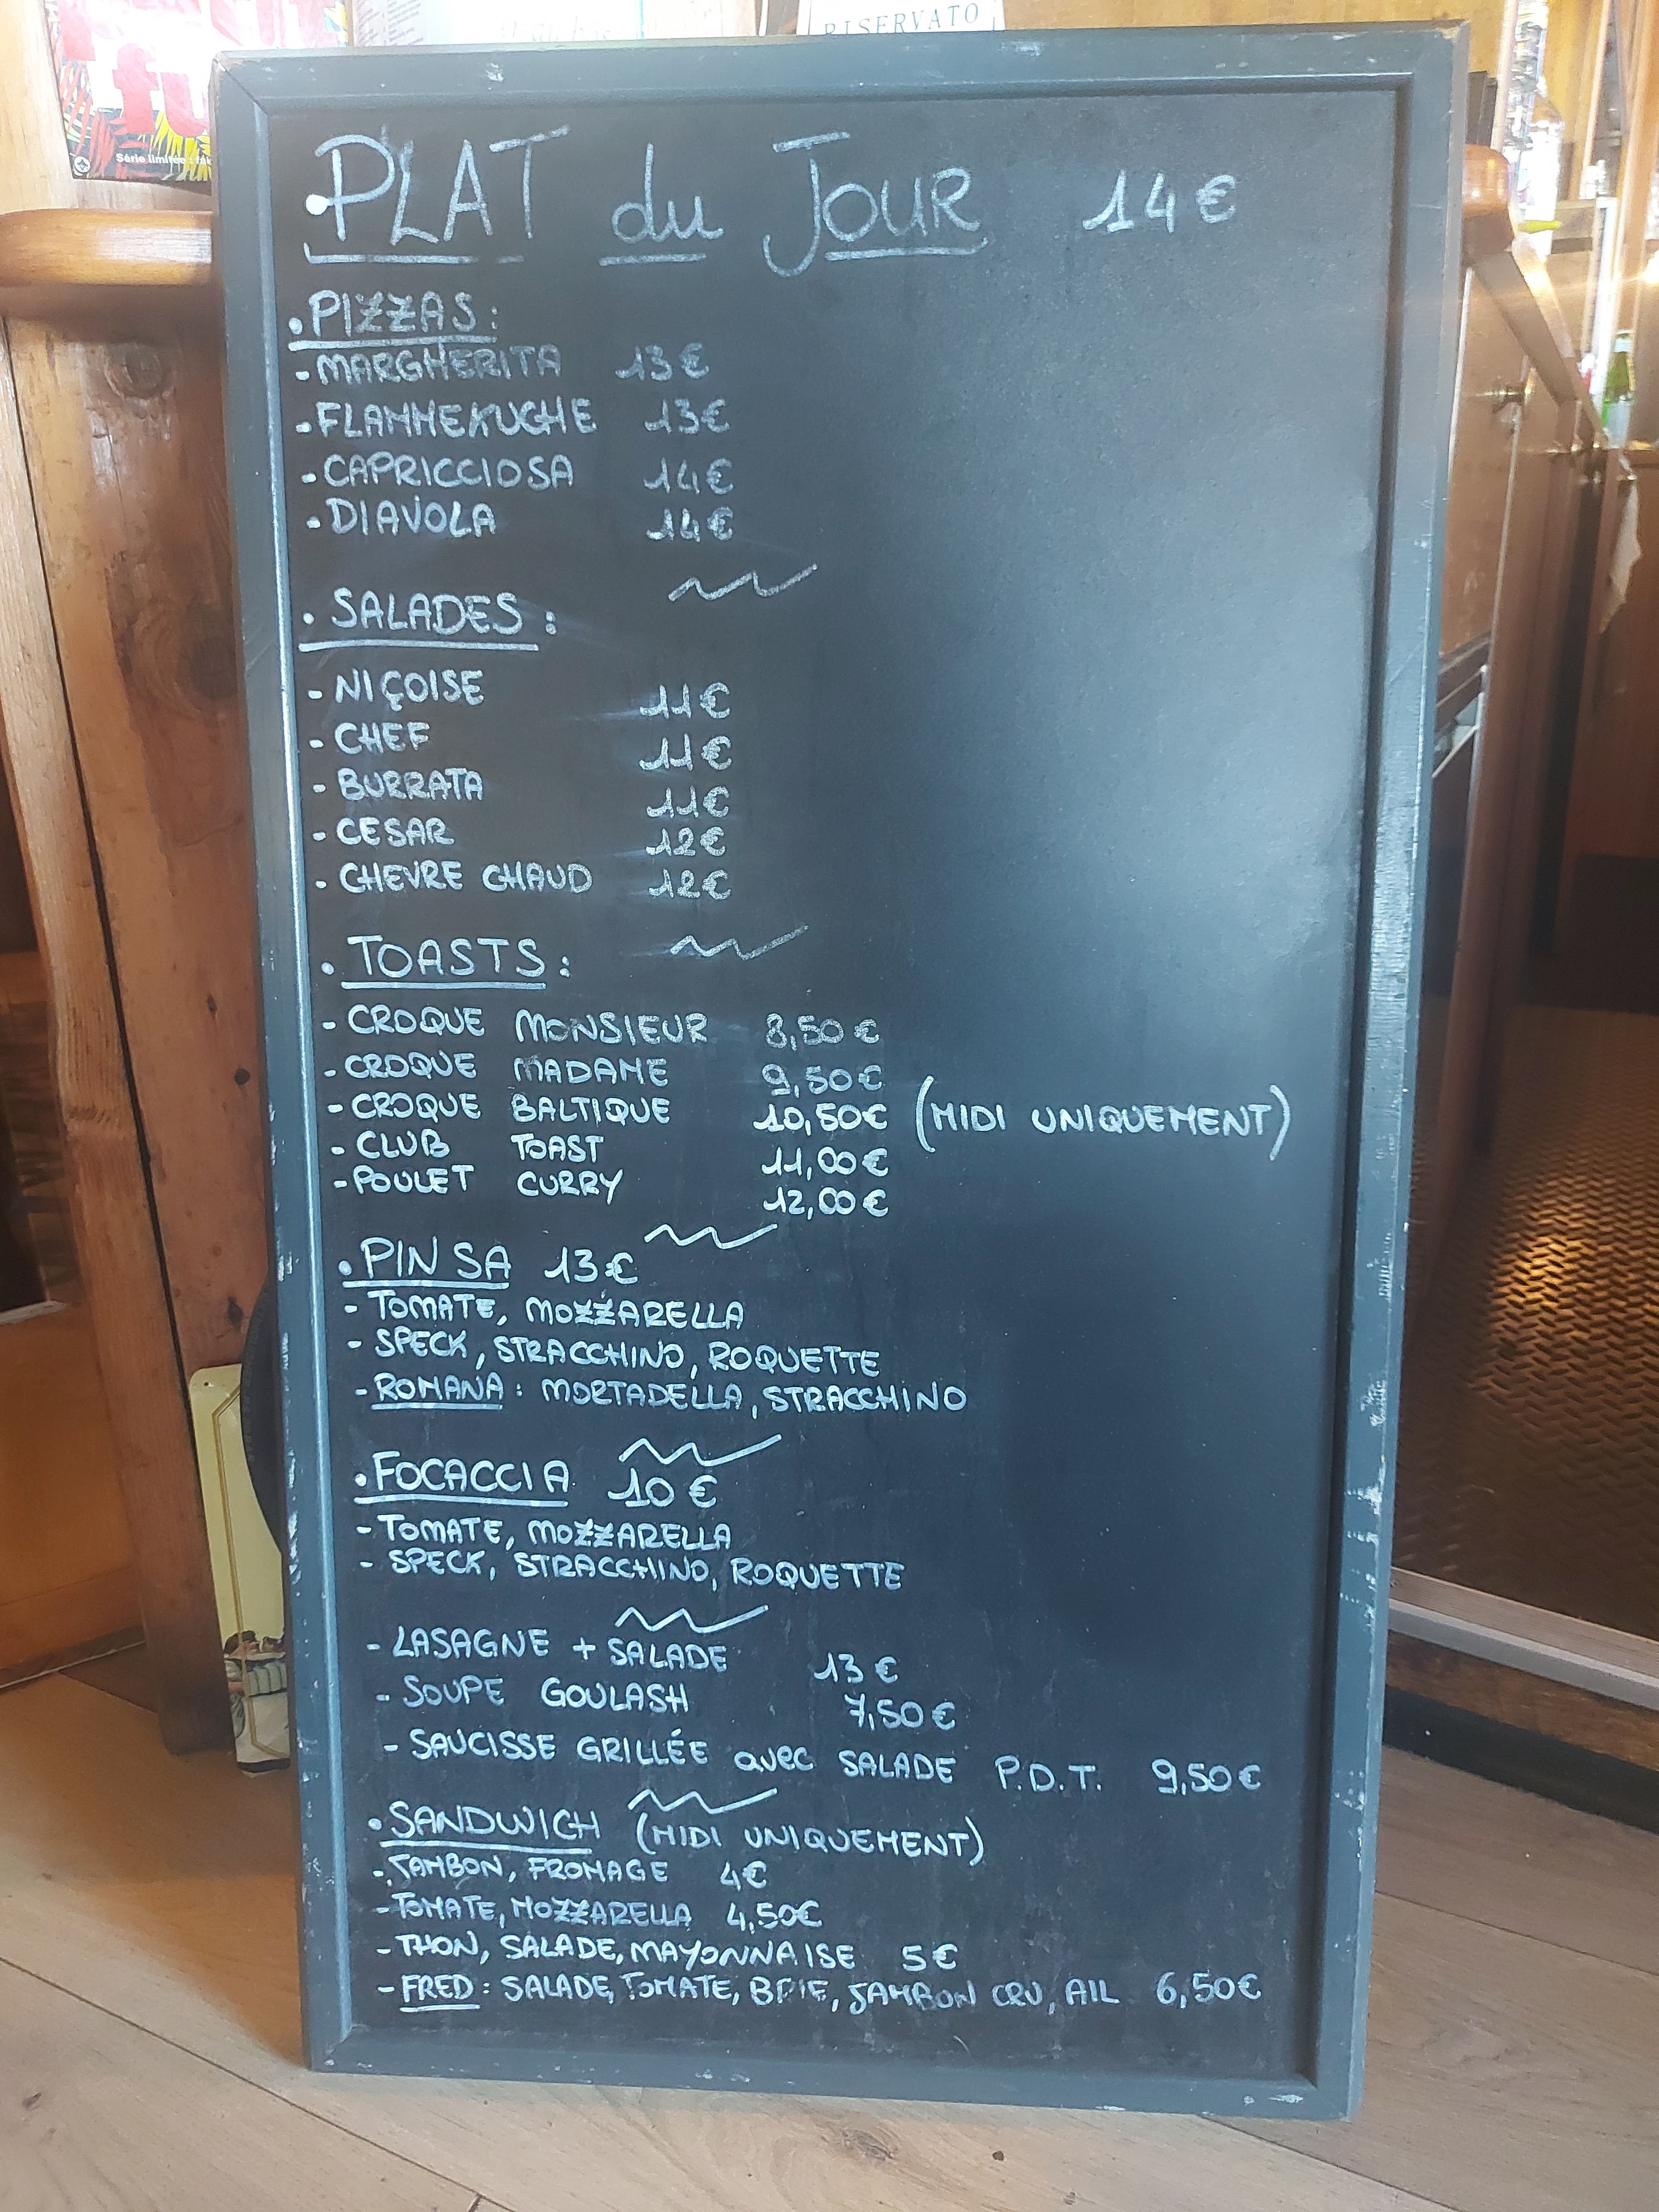 RISERVATO
Série limitée :
• PLAT du JOUR 14€
• PIZZAS :
- MARGHERITA 13€
- FLAMMEKUCHE 13€
- CAPRICCIOSA 14€
- DIAVOLA 14€
• SALADES :
- NIÇOISE 11€
- CHEF 11€
- BURRATA 11€
- CESAR 12€
- CHEVRE CHAUD 12€
• TOASTS :
- CROQUE MONSIEUR 8,50€
- CROQUE MADAME 9,50€
- CROQUE BALTIQUE 10,50€ (MIDI UNIQUEMENT)
- CLUB TOAST 11,00€
- POULET CURRY 12,00€
• PINSA 13€
- TOMATE, MOZZARELLA
- SPECK, STRACCHINO, ROQUETTE
- ROMANA : MORTADELLA, STRACCHINO
• FOCACCIA 10€
- TOMATE, MOZZARELLA
- SPECK, STRACCHINO, ROQUETTE
- LASAGNE + SALADE 13€
- SOUPE GOULASH 7,50€
- SAUCISSE GRILLÉE avec SALADE P.D.T. 9,50€
• SANDWICH (MIDI UNIQUEMENT)
- JAMBON, FROMAGE 4€
- TOMATE, MOZZARELLA 4,50€
- THON, SALADE, MAYONNAISE 5€
- FRED : SALADE, TOMATE, BRIE, JAMBON CRU, AIL 6,50€